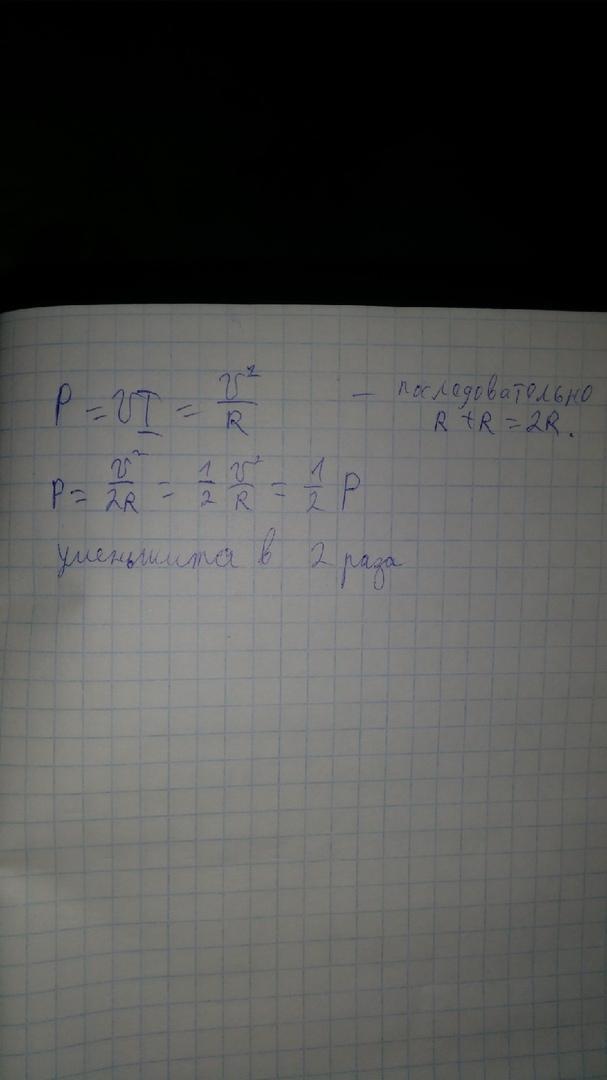 P = UI = U²/R — последовательно
R + R = 2R.
P = U²/2R = 1/2 U²/R = 1/2 P
уменьшится в 2 раза